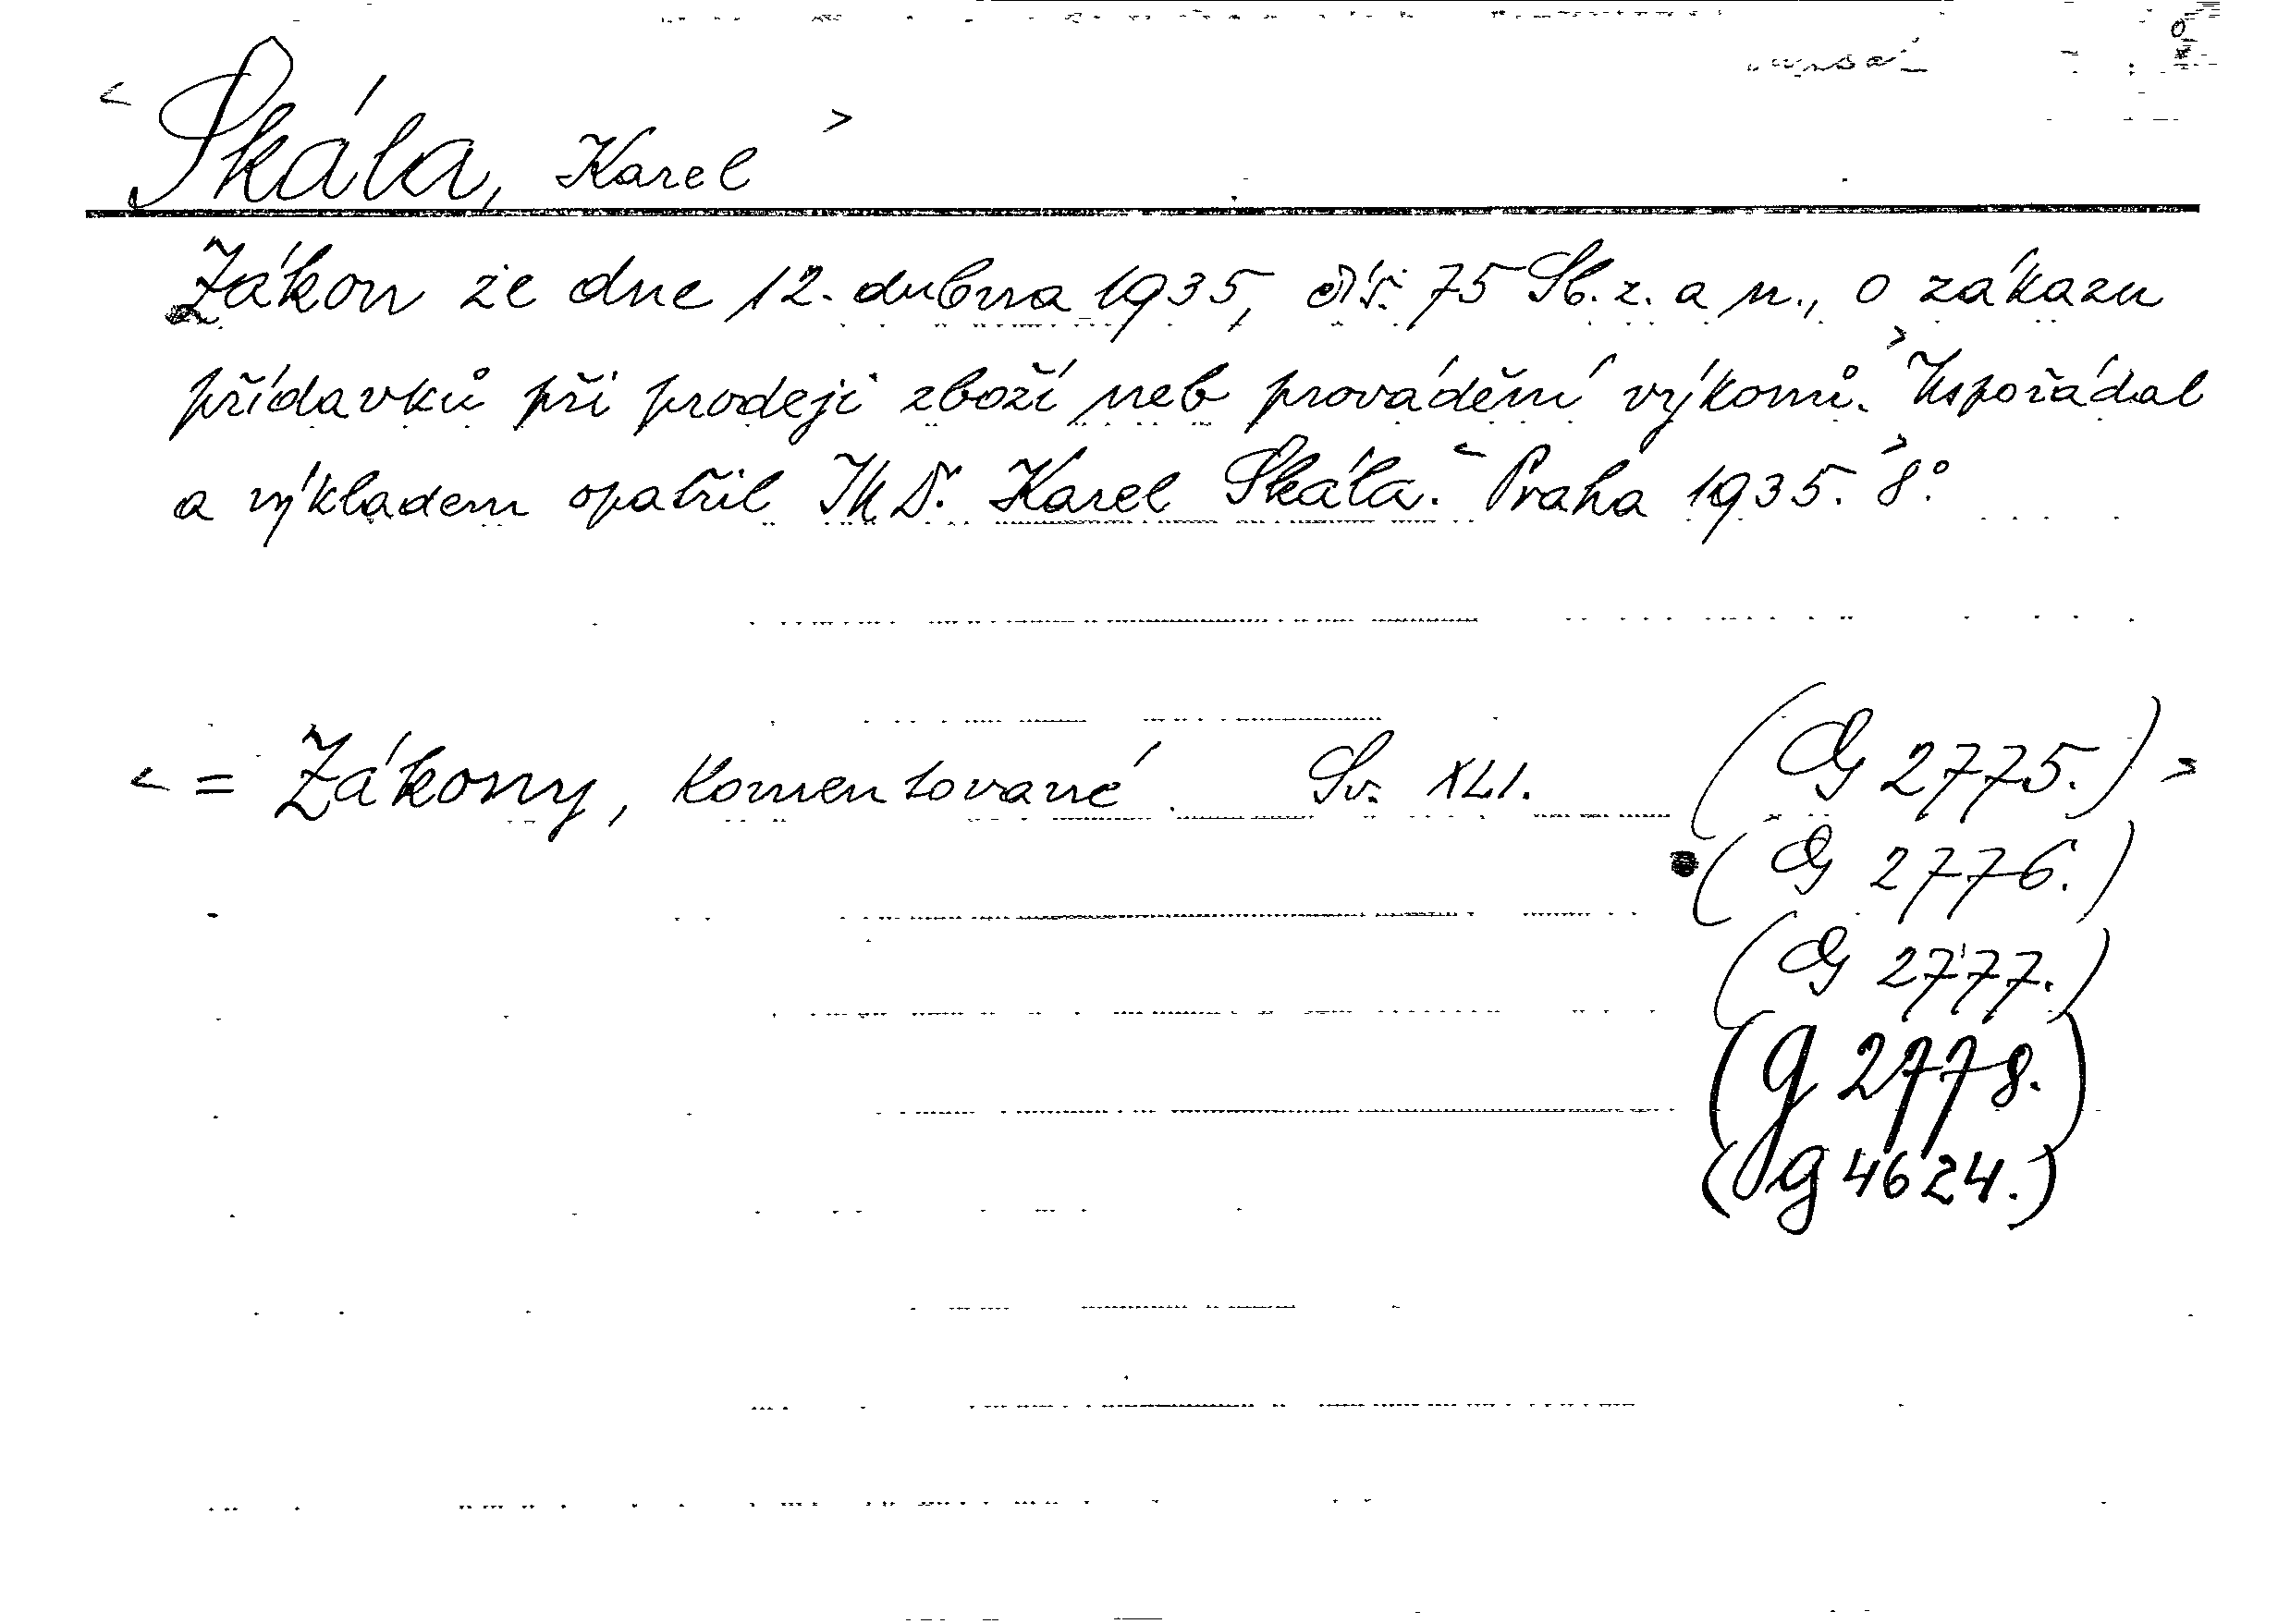 < Skála, Karel >
Zákon ze dne 12. dubna 1935, čís. 75 Sb. z. a n., o zákazu
přídavků při prodeji zboží neb provádění výkonů. > Uspořádal
a výkladem opatřil JUDr. Karel Skála. < Praha 1935. > 8°.
< = Zákony, komentované. Sv. XLI. (G 2775.) >
(G 2776.)
(G 2777.)
(g 2778.)
(g 4624.)